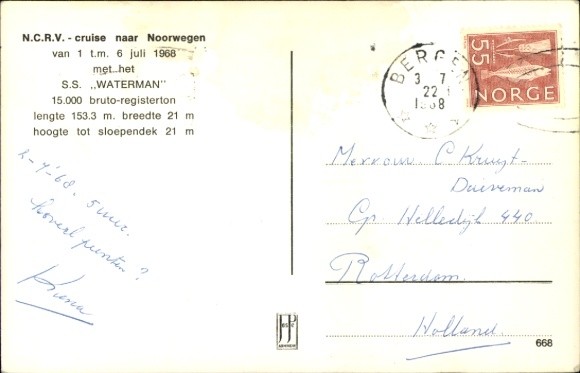 N.C.R.V. - cruise naar Noorwegen
van 1 t.m. 6 juli 1968
met het
S.S. ,,WATERMAN"
15.000 bruto-registerton
lengte 153.3 m. breedte 21 m
hoogte tot sloependek 21 m
2-7-'68. 5 uur.
hoveel punten?
BERGEN
3 7
22
1968
55
NORGE
Mevrouw C Kruyt-
Duiveman
Gr. Hilledijk 440
Rotterdam.
Holland.
JP
668